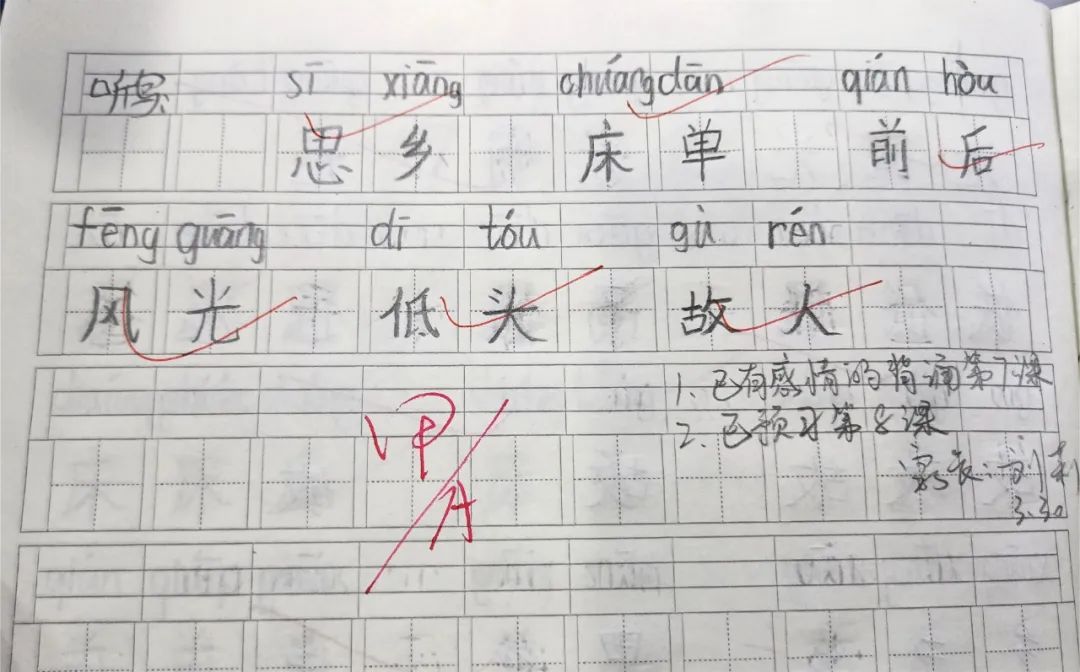 听写 sī xiāng chuáng dān qián hòu
思乡 床单 前后
fēng guāng dī tóu gù rén
风光 低头 故人
1.已有感情的背诵第7课
2.已预习第8课
家长:刘
3.30
A